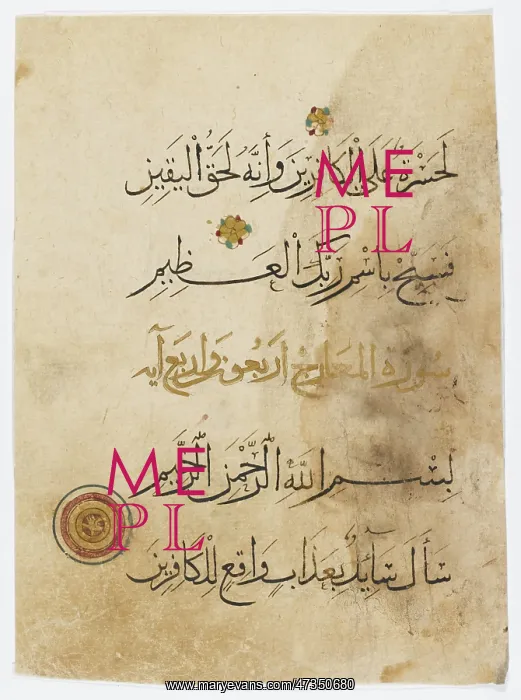 لَحَسْرَةٌ عَلَى الْكَافِرِينَ وَإِنَّهُ لَحَقُّ الْيَقِينِ
فَسَبِّحْ بِاسْمِ رَبِّكَ الْعَظِيمِ
سورة المعارج أربعون وأربع آية
بِسْمِ اللَّهِ الرَّحْمَٰنِ الرَّحِيمِ
سَأَلَ سَائِلٌ بِعَذَابٍ وَاقِعٍ لِلْكَافِرِينَ
ME
PL
ME
PL
www.maryevans.com/47350680